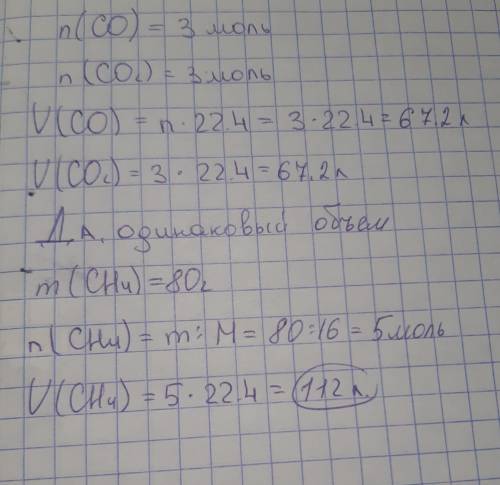 n(CO) = 3 моль
n(CO₂) = 3 моль
V(CO) = n · 22.4 = 3 · 22.4 = 67.2 л
V(CO₂) = 3 · 22.4 = 67.2 л
Да, одинаковый объем
m(CH₄) = 80г
n(CH₄) = m : M = 80 : 16 = 5 моль
V(CH₄) = 5 · 22.4 = 112 л.